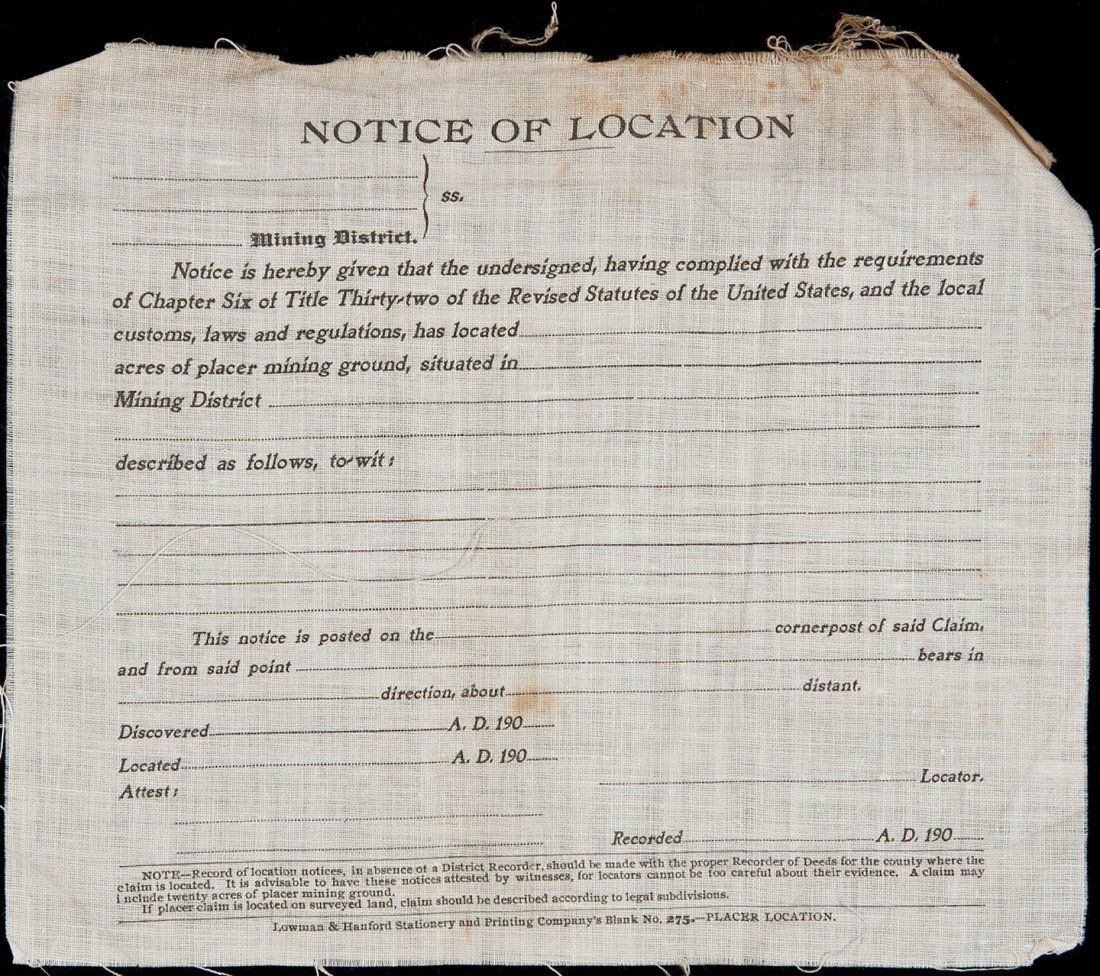 NOTICE OF LOCATION
ss.
Mining District.
Notice is hereby given that the undersigned, having complied with the requirements
of Chapter Six of Title Thirty-two of the Revised Statutes of the United States, and the local
customs, laws and regulations, has located
acres of placer mining ground, situated in
Mining District
described as follows, to-wit:
This notice is posted on the cornerpost of said Claim,
and from said point bears in
direction, about distant.
Discovered A. D. 190
Located A. D. 190
Locator.
Attest:
Recorded A. D. 190
NOTE—Record of location notices, in absence of a District Recorder, should be made with the proper Recorder of Deeds for the county where the
claim is located. It is advisable to have these notices attested by witnesses, for locators cannot be too careful about their evidence. A claim may
include twenty acres of placer mining ground.
If placer claim is located on surveyed land, claim should be described according to legal subdivisions.
Lowman & Hanford Stationery and Printing Company's Blank No. 275.—PLACER LOCATION.